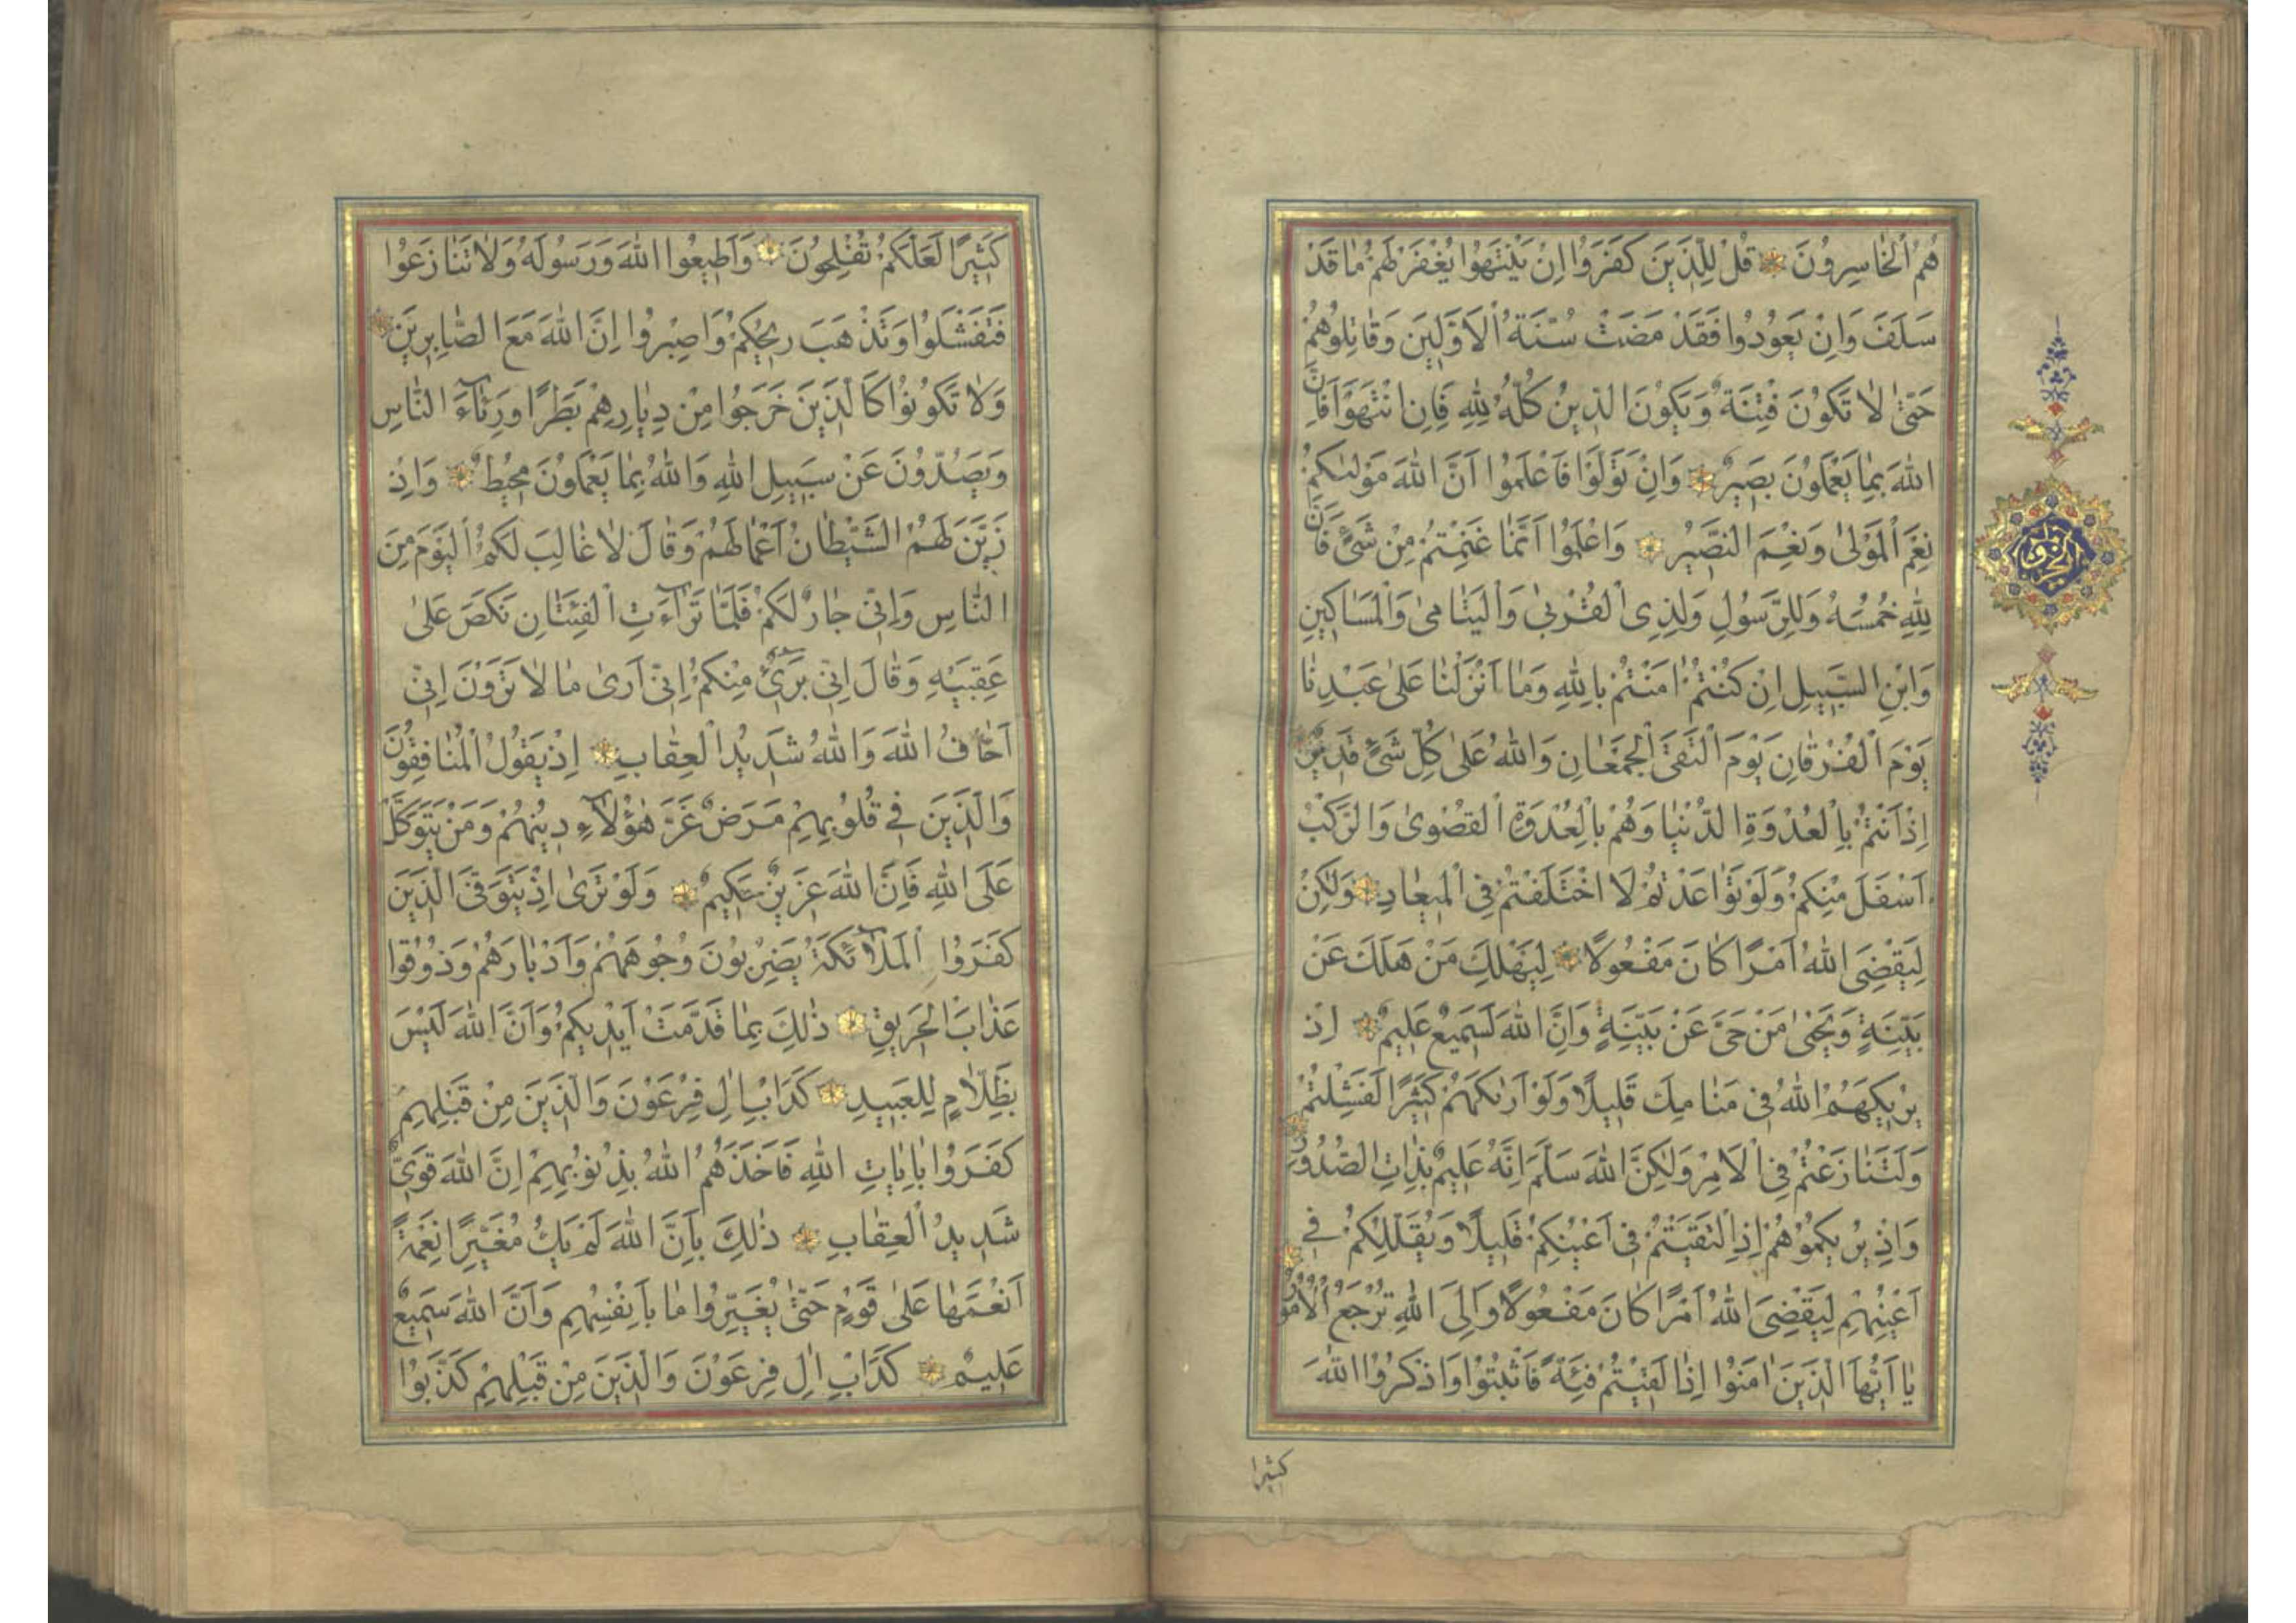 هُمُ الْخَاسِرُونَ قُلْ لِلَّذِينَ كَفَرُوا اِنْ يَنْتَهُوا يُغْفَرْ لَهُمْ مَا قَدْ
سَلَفَ وَاِنْ يَعُودُوا فَقَدْ مَضَتْ سُنَّةُ الْاَوَّلِينَ وَقَاتِلُوهُمْ
حَتّٰى لَا تَكُونَ فِتْنَةٌ وَيَكُونَ الدِّينُ كُلُّهُ لِلّٰهِ فَاِنِ انْتَهَوْا فَاِنَّ
اللّٰهَ بِمَا يَعْمَلُونَ بَصِيرٌ وَاِنْ تَوَلَّوْا فَاعْلَمُوا اَنَّ اللّٰهَ مَوْلٰيكُمْ
نِعْمَ الْمَوْلٰى وَنِعْمَ النَّصِيرُ وَاعْلَمُوا اَنَّمَا غَنِمْتُمْ مِنْ شَيْءٍ فَاَنَّ
لِلّٰهِ خُمُسَهُ وَلِلرَّسُولِ وَلِذِى الْقُرْبٰى وَالْيَتَامٰى وَالْمَسَاكِينِ
وَابْنِ السَّبِيلِ اِنْ كُنْتُمْ اٰمَنْتُمْ بِاللّٰهِ وَمَا اَنْزَلْنَا عَلٰى عَبْدِنَا
يَوْمَ الْفُرْقَانِ يَوْمَ الْتَقَى الْجَمْعَانِ وَاللّٰهُ عَلٰى كُلِّ شَيْءٍ قَدِيرٌ
اِذْ اَنْتُمْ بِالْعُدْوَةِ الدُّنْيَا وَهُمْ بِالْعُدْوَةِ الْقُصْوٰى وَالرَّكْبُ
اَسْفَلَ مِنْكُمْ وَلَوْ تَوَاعَدْتُمْ لَاخْتَلَفْتُمْ فِى الْمِيعَادِ وَلٰكِنْ
لِيَقْضِىَ اللّٰهُ اَمْرًا كَانَ مَفْعُولًا لِيَهْلِكَ مَنْ هَلَكَ عَنْ
بَيِّنَةٍ وَيَحْيٰى مَنْ حَىَّ عَنْ بَيِّنَةٍ وَاِنَّ اللّٰهَ لَسَمِيعٌ عَلِيمٌ اِذْ
يُرِيكَهُمُ اللّٰهُ فِى مَنَامِكَ قَلِيلًا وَلَوْ اَرٰيكَهُمْ كَثِيرًا لَفَشِلْتُمْ
وَلَتَنَازَعْتُمْ فِى الْاَمْرِ وَلٰكِنَّ اللّٰهَ سَلَّمَ اِنَّهُ عَلِيمٌ بِذَاتِ الصُّدُورِ
وَاِذْ يُرِيكُمُوهُمْ اِذِ الْتَقَيْتُمْ فِى اَعْيُنِكُمْ قَلِيلًا وَيُقَلِّلُكُمْ فِى
اَعْيُنِهِمْ لِيَقْضِىَ اللّٰهُ اَمْرًا كَانَ مَفْعُولًا وَاِلَى اللّٰهِ تُرْجَعُ الْاُمُورُ
يَا اَيُّهَا الَّذِينَ اٰمَنُوا اِذَا لَقِيتُمْ فِئَةً فَاثْبُتُوا وَاذْكُرُوا اللّٰهَ
كثيرا
كَثِيرًا لَعَلَّكُمْ تُفْلِحُونَ وَاَطِيعُوا اللّٰهَ وَرَسُولَهُ وَلَا تَنَازَعُوا
فَتَفْشَلُوا وَتَذْهَبَ رِيحُكُمْ وَاصْبِرُوا اِنَّ اللّٰهَ مَعَ الصَّابِرِينَ
وَلَا تَكُونُوا كَالَّذِينَ خَرَجُوا مِنْ دِيَارِهِمْ بَطَرًا وَرِئَآءَ النَّاسِ
وَيَصُدُّونَ عَنْ سَبِيلِ اللّٰهِ وَاللّٰهُ بِمَا يَعْمَلُونَ مُحِيطٌ وَاِذْ
زَيَّنَ لَهُمُ الشَّيْطَانُ اَعْمَالَهُمْ وَقَالَ لَا غَالِبَ لَكُمُ الْيَوْمَ مِنَ
النَّاسِ وَاِنِّى جَارٌ لَكُمْ فَلَمَّا تَرَآءَتِ الْفِئَتَانِ نَكَصَ عَلٰى
عَقِبَيْهِ وَقَالَ اِنِّى بَرِىءٌ مِنْكُمْ اِنِّى اَرٰى مَا لَا تَرَوْنَ اِنِّى
اَخَافُ اللّٰهَ وَاللّٰهُ شَدِيدُ الْعِقَابِ اِذْ يَقُولُ الْمُنَافِقُونَ
وَالَّذِينَ فِى قُلُوبِهِمْ مَرَضٌ غَرَّ هٰؤُلَآءِ دِينُهُمْ وَمَنْ يَتَوَكَّلْ
عَلَى اللّٰهِ فَاِنَّ اللّٰهَ عَزِيزٌ حَكِيمٌ وَلَوْ تَرٰى اِذْ يَتَوَفَّى الَّذِينَ
كَفَرُوا الْمَلٰٓئِكَةُ يَضْرِبُونَ وُجُوهَهُمْ وَاَدْبَارَهُمْ وَذُوقُوا
عَذَابَ الْحَرِيقِ ذٰلِكَ بِمَا قَدَّمَتْ اَيْدِيكُمْ وَاَنَّ اللّٰهَ لَيْسَ
بِظَلَّامٍ لِلْعَبِيدِ كَدَاْبِ اٰلِ فِرْعَوْنَ وَالَّذِينَ مِنْ قَبْلِهِمْ
كَفَرُوا بِاٰيَاتِ اللّٰهِ فَاَخَذَهُمُ اللّٰهُ بِذُنُوبِهِمْ اِنَّ اللّٰهَ قَوِىٌّ
شَدِيدُ الْعِقَابِ ذٰلِكَ بِاَنَّ اللّٰهَ لَمْ يَكُ مُغَيِّرًا نِعْمَةً
اَنْعَمَهَا عَلٰى قَوْمٍ حَتّٰى يُغَيِّرُوا مَا بِاَنْفُسِهِمْ وَاَنَّ اللّٰهَ سَمِيعٌ
عَلِيمٌ كَدَاْبِ اٰلِ فِرْعَوْنَ وَالَّذِينَ مِنْ قَبْلِهِمْ كَذَّبُوا